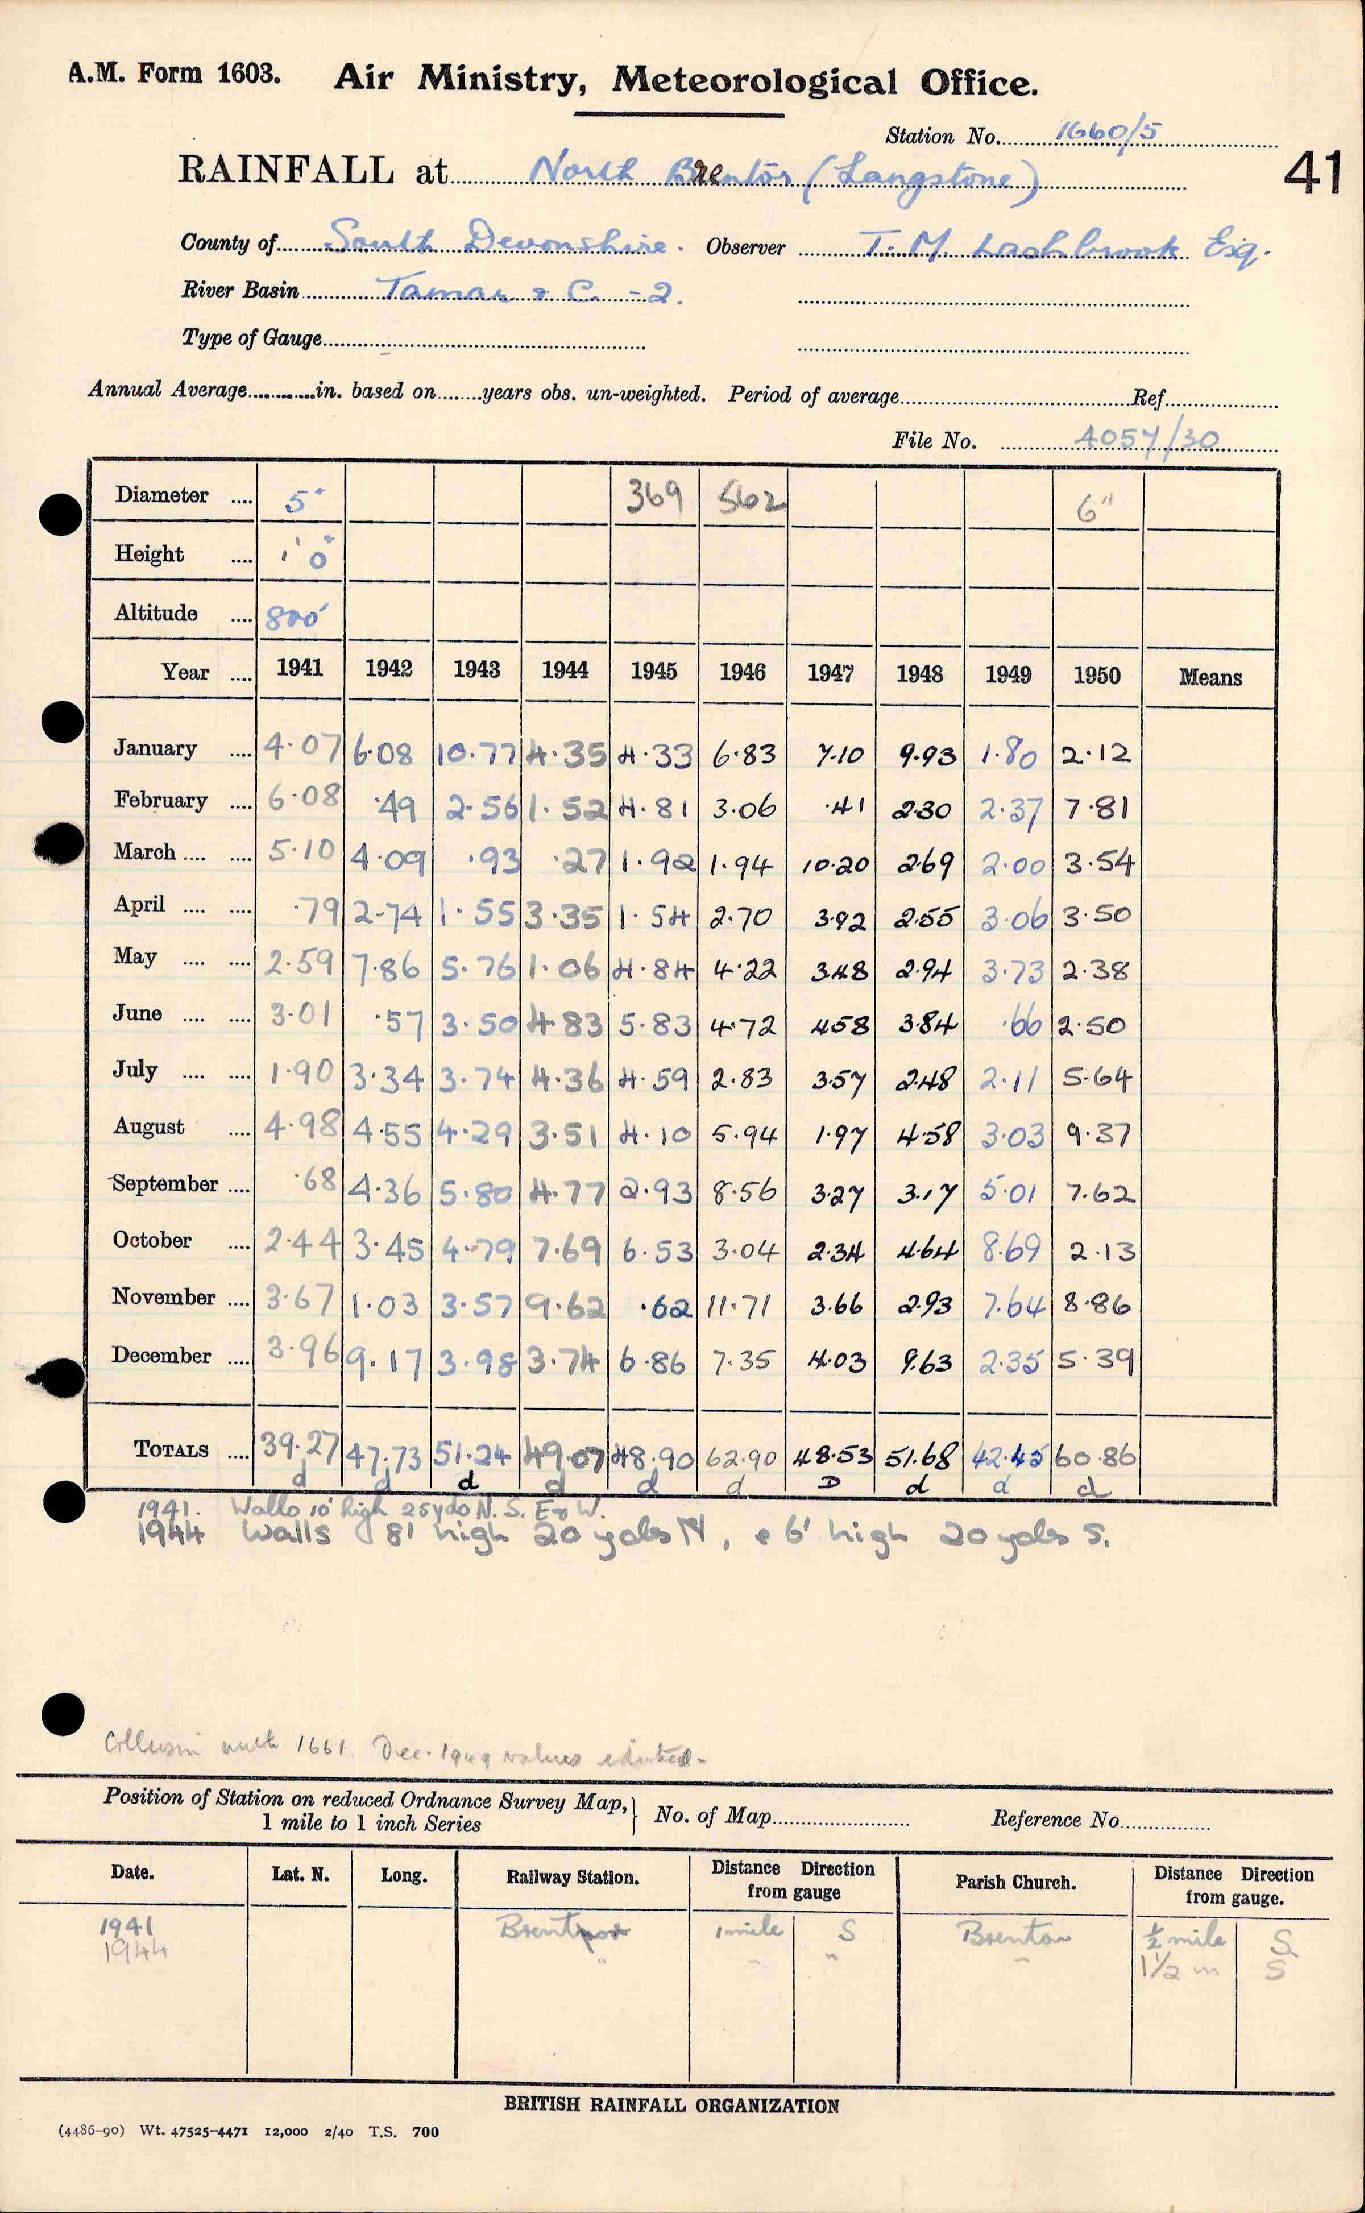 A.M. Form 1603. Air Ministry, Meteorological Office.
Station No. 1660/5
41
RAINFALL at North Brentor (Langstone)
County of South Devonshire. Observer T. M. Lashbrook Esq.
River Basin Tamar & C. -2.
Type of Gauge
Annual Average in. based on years obs. un-weighted. Period of average Ref
File No. 4057/30
Diameter 5" 369 562 6"
Height 1' 0"
Altitude 800'
Year 1941 1942 1943 1944 1945 1946 1947 1948 1949 1950 Means
January 4.07 6.08 10.77 4.35 4.33 6.83 7.10 9.93 1.80 2.12
February 6.08 .49 2.56 1.52 4.81 3.06 .41 2.30 2.37 7.81
March 5.10 4.09 .93 .27 1.92 1.94 10.20 2.69 2.00 3.54
April .79 2.74 1.55 3.35 1.54 2.70 3.92 2.55 3.06 3.50
May 2.59 7.86 5.76 1.06 4.84 4.22 3.48 2.94 3.73 2.38
June 3.01 .57 3.50 4.83 5.83 4.72 4.58 3.84 .66 2.50
July 1.90 3.34 3.74 4.36 4.59 2.83 3.57 2.48 2.11 5.64
August 4.98 4.55 4.29 3.51 4.10 5.94 1.97 4.58 3.03 9.37
September .68 4.36 5.80 4.77 2.93 8.56 3.27 3.17 5.01 7.62
October 2.44 3.45 4.79 7.69 6.53 3.04 2.34 4.64 8.69 2.13
November 3.67 1.03 3.57 9.62 .62 11.71 3.66 2.93 7.64 8.86
December 3.96 9.17 3.98 3.74 6.86 7.35 4.03 9.63 2.35 5.39
TOTALS 39.27 47.73 51.24 49.07 48.90 62.90 48.53 51.68 42.45 60.86
d d d d d d D d d d
1941. Walls 10' high 25 yds N. S. E & W.
1944 Walls 8' high 20 yds N, & 6' high 20 yds S.
with 1661 Dec. 1949 values
Position of Station on reduced Ordnance Survey Map, 1 mile to 1 inch Series } No. of Map Reference No.
Date. Lat. N. Long. Railway Station. Distance Direction from gauge Parish Church. Distance Direction from gauge.
1941 1 mile S Brentor ½ mile S.
1944 " " " " 1½ m S
BRITISH RAINFALL ORGANIZATION
(4486-90) Wt. 47525-4471 12,000 2/40 T.S. 700